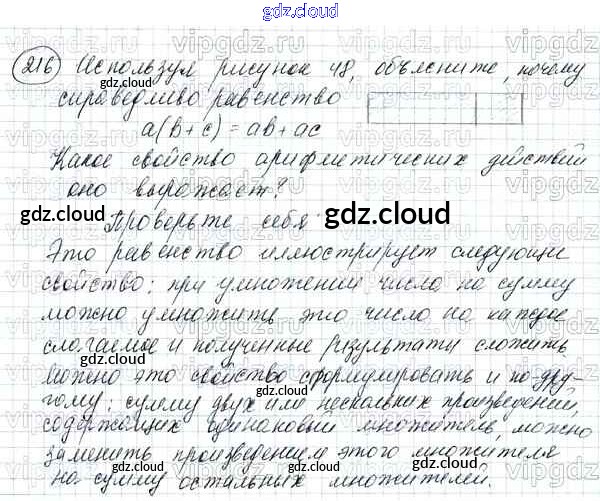 gdz.cloud
216 Используя рисунок 48, объясните, почему
справедливо равенство
a(b+c) = ab + ac
Какое свойство арифметических действий
оно выражает?
gdz.cloud
gdz.cloud
Проверьте себя
gdz.cloud
Это равенство иллюстрирует следующее
свойство: при умножении числа на сумму
можно умножить это число на каждое
слагаемое и полученные результаты сложить.
можно это свойство сформулировать и по-дру-
гому: сумму двух или нескольких произведений,
содержащих одинаковый множитель, можно
заменить произведением этого множителя
на сумму остальных множителей.
gdz.cloud
gdz.cloud